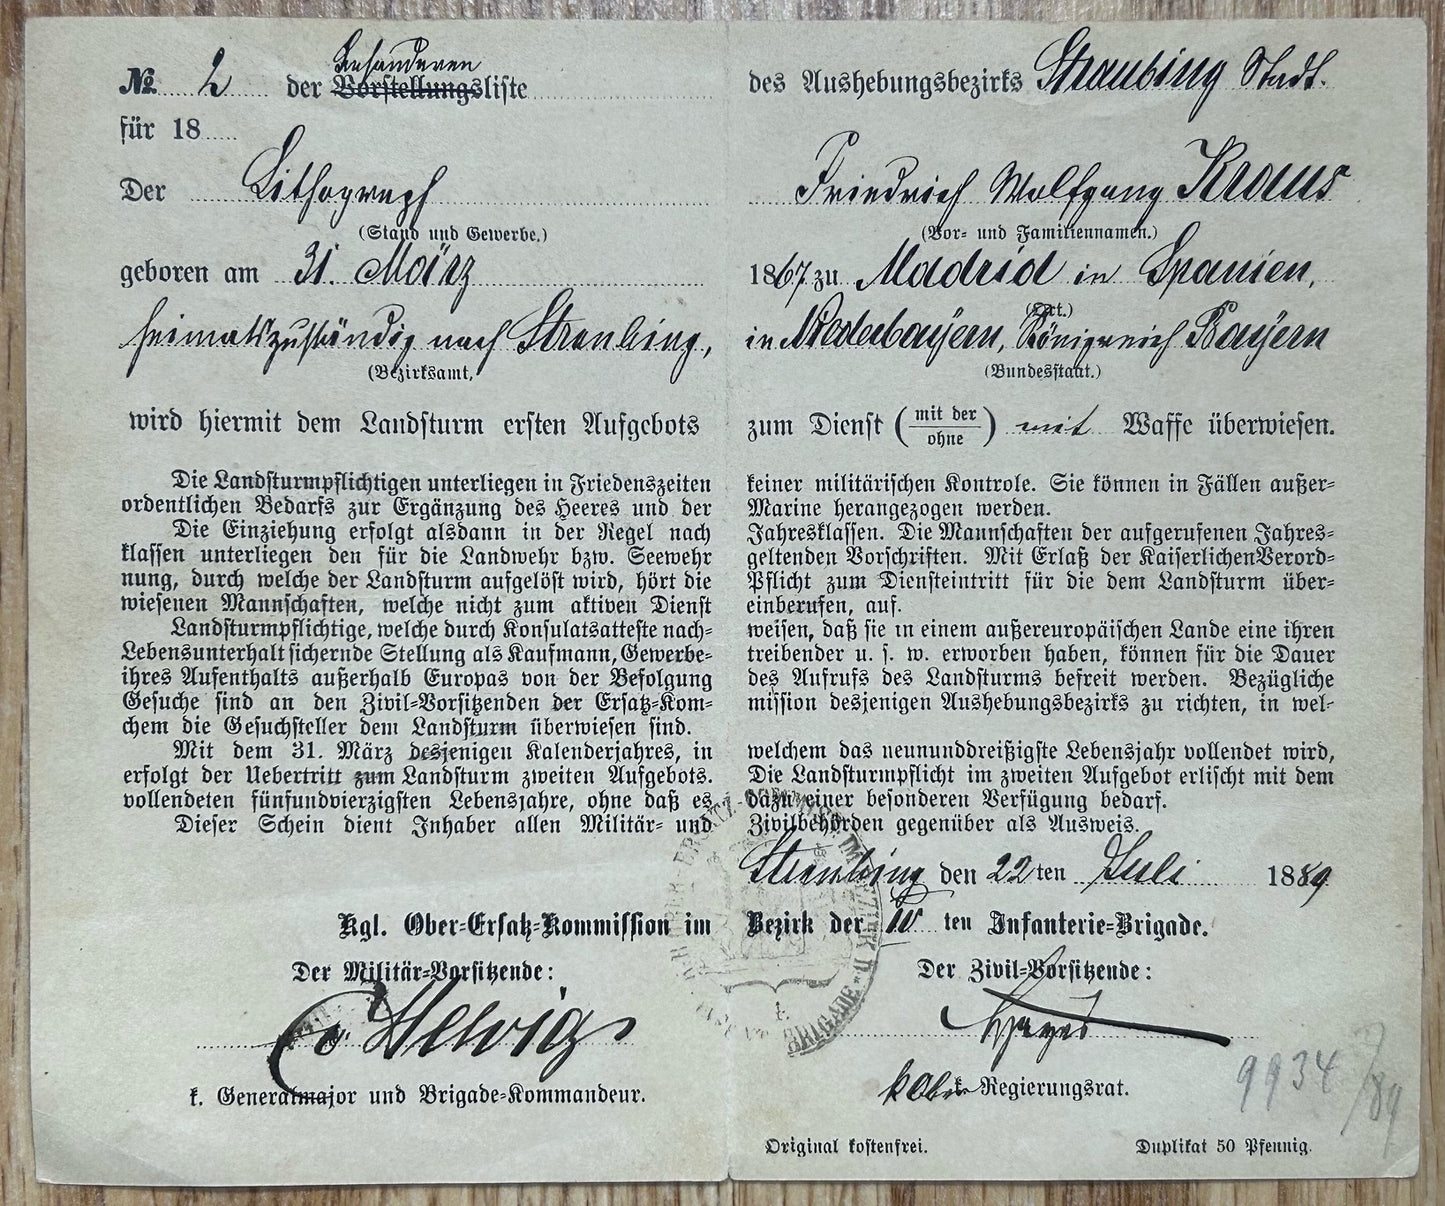 besonderen
№ 2 der Vorstellungsliste des Aushebungsbezirks Straubing Stadt.
für 18
Der Lithograph Friedrich Wolfgang Kraus
(Stand und Gewerbe.) (Vor- und Familiennamen.)
geboren am 31. März 1867 zu Madrid in Spanien,
(Ort.)
heimatszuständig nach Straubing, in Niederbayern, Königreich Bayern
(Bezirksamt, (Bundesstaat.)
wird hiermit dem Landsturm ersten Aufgebots zum Dienst (mit der / ohne) mit Waffe überwiesen.
Die Landsturmpflichtigen unterliegen in Friedenszeiten keiner militärischen Kontrole. Sie können in Fällen außer-
ordentlichen Bedarfs zur Ergänzung des Heeres und der Marine herangezogen werden.
Die Einziehung erfolgt alsdann in der Regel nach Jahresklassen. Die Mannschaften der aufgerufenen Jahres-
klassen unterliegen den für die Landwehr bzw. Seewehr geltenden Vorschriften. Mit Erlaß der Kaiserlichen Verord-
nung, durch welche der Landsturm aufgelöst wird, hört die Pflicht zum Diensteintritt für die dem Landsturm über-
wiesenen Mannschaften, welche nicht zum aktiven Dienst einberufen, auf.
Landsturmpflichtige, welche durch Konsulatsatteste nach- weisen, daß sie in einem außereuropäischen Lande eine ihren
Lebensunterhalt sichernde Stellung als Kaufmann, Gewerbe- treibender u. s. w. erworben haben, können für die Dauer
ihres Aufenthalts außerhalb Europas von der Befolgung des Aufrufs des Landsturms befreit werden. Bezügliche
Gesuche sind an den Zivil-Vorsitzenden der Ersatz-Kom- mission desjenigen Aushebungsbezirks zu richten, in wel-
chem die Gesuchsteller dem Landsturm überwiesen sind.
Mit dem 31. März desjenigen Kalenderjahres, in welchem das neununddreißigste Lebensjahr vollendet wird,
erfolgt der Uebertritt zum Landsturm zweiten Aufgebots. Die Landsturmpflicht im zweiten Aufgebot erlischt mit dem
vollendeten fünfundvierzigsten Lebensjahre, ohne daß es dazu einer besonderen Verfügung bedarf.
Dieser Schein dient Inhaber allen Militär- und Zivilbehörden gegenüber als Ausweis.
Straubing den 22ten Juli 1889
Kgl. Ober-Ersatz-Kommission im Bezirk der IV ten Infanterie-Brigade.
Der Militär-Vorsitzende: Der Zivil-Vorsitzende:
v. Helvig
k. Generalmajor und Brigade-Kommandeur. k. Regierungsrat.
9934/89
Original kostenfrei. Duplikat 50 Pfennig.
BRIGADE